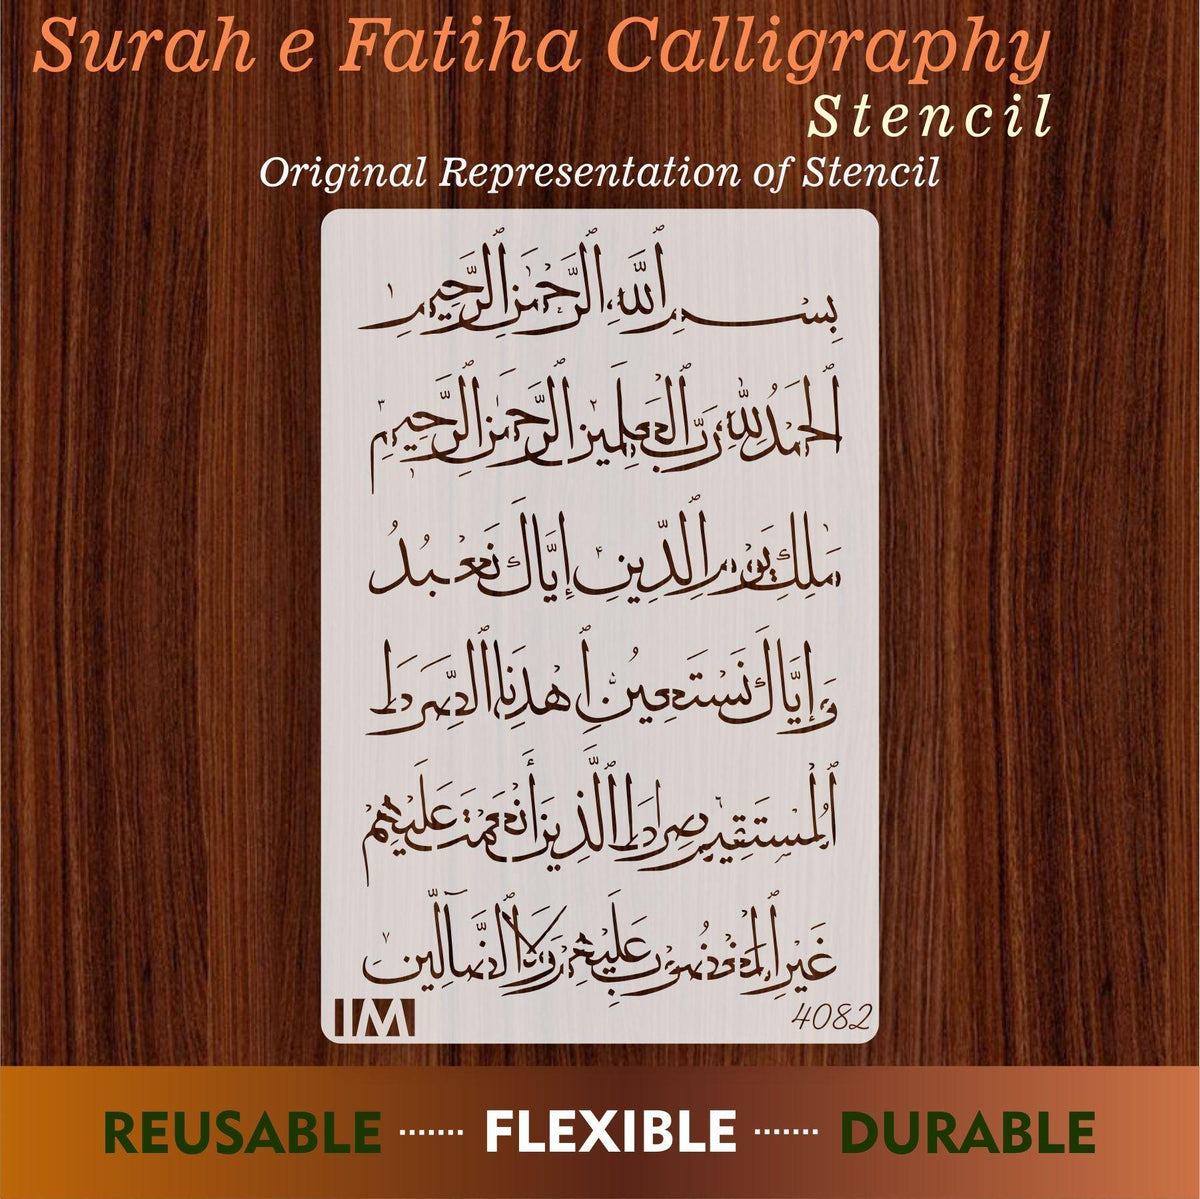 Surah e Fatiha Calligraphy
Stencil
Original Representation of Stencil
بِسْمِ ٱللَّهِ ٱلرَّحْمَٰنِ ٱلرَّحِيمِ ١
ٱلْحَمْدُ لِلَّهِ رَبِّ ٱلْعَٰلَمِينَ ٢ ٱلرَّحْمَٰنِ ٱلرَّحِيمِ ٣
مَٰلِكِ يَوْمِ ٱلدِّينِ ٤ إِيَّاكَ نَعْبُدُ
وَإِيَّاكَ نَسْتَعِينُ ٱهْدِنَا ٱلصِّرَٰطَ
ٱلْمُسْتَقِيمَ ٦ صِرَٰطَ ٱلَّذِينَ أَنْعَمْتَ عَلَيْهِمْ
غَيْرِ ٱلْمَغْضُوبِ عَلَيْهِمْ وَلَا ٱلضَّآلِّينَ ٧
4082
REUSABLE ....... FLEXIBLE ....... DURABLE